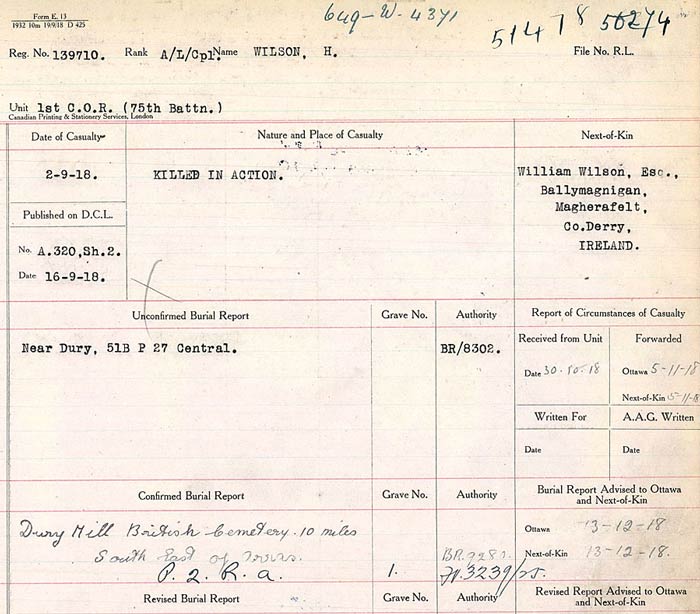 Form E. 13
1932 10m 19/9/18 D 425
649-W-4371
51478 56274
Reg. No. 139710. Rank A/L/Cpl. Name WILSON, H. File No. R.L.
Unit 1st C.O.R. (75th Battn.)
Canadian Printing & Stationery Services, London
Date of Casualty Nature and Place of Casualty Next-of-Kin
2-9-18. KILLED IN ACTION. William Wilson, Esq.,
Ballymagnigan,
Magherafelt,
Co.Derry,
IRELAND.
Published on D.C.L.
No. A.320,Sh.2.
Date 16-9-18.
Unconfirmed Burial Report Grave No. Authority Report of Circumstances of Casualty
Near Dury, 51B P 27 Central. BR/8302.
Received from Unit Forwarded
Date 30.10.18 Ottawa 5-11-18
Next-of-Kin 5-11-18
Written For A.A.G. Written
Date Date
Confirmed Burial Report Grave No. Authority Burial Report Advised to Ottawa
and Next-of-Kin
Dury Mill British Cemetery. 10 miles
South East of Arras.
P. 2. R. a. 1.
Ottawa 13-12-18
Next-of-Kin 13-12-18.
Revised Burial Report Grave No. Authority Revised Report Advised to Ottawa
and Next-of-Kin